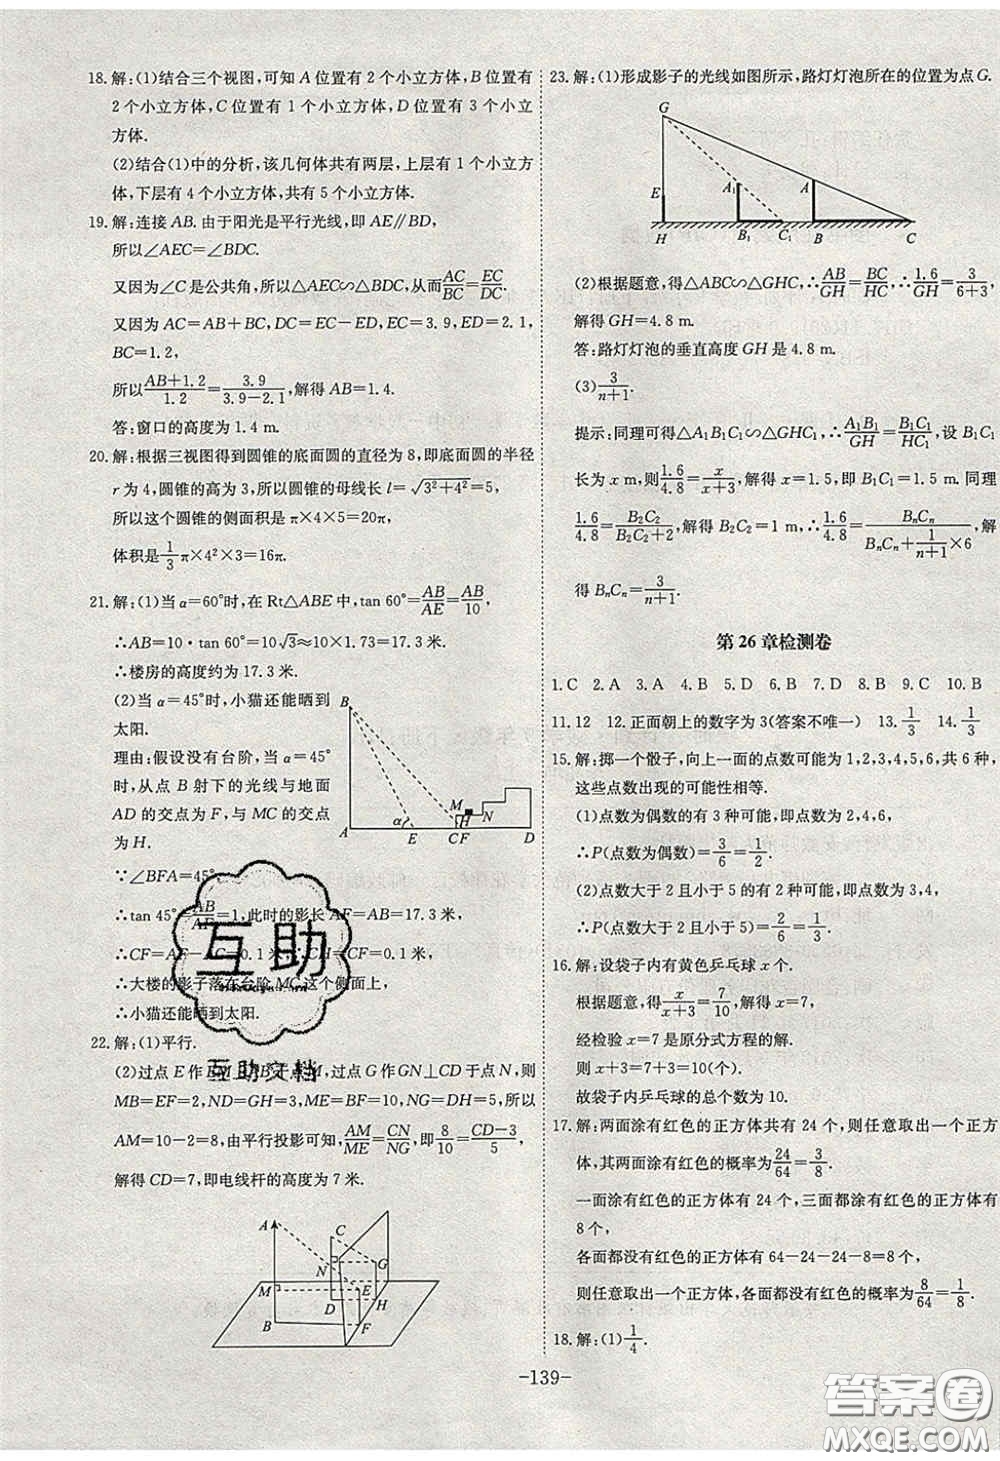 18. 解:(1)结合三个视图,可知 A 位置有 2 个小立方体,B 位置有
2 个小立方体,C 位置有 1 个小立方体,D 位置有 3 个小立
方体.
(2)结合(1)中的分析,该几何体共有两层,上层有 1 个小立方
体,下层有 4 个小立方体,共有 5 个小立方体.
19. 解:连接 AB. 由于阳光是平行光线,即 AE∥BD,
所以∠AEC=∠BDC.
又因为∠C 是公共角,所以△AEC∽△BDC,从而 AC/BC=EC/DC.
又因为 AC=AB+BC,DC=EC-ED,EC=3.9,ED=2.1,
BC=1.2,
所以 (AB+1.2)/1.2=3.9/(3.9-2.1),解得 AB=1.4.
答:窗口的高度为 1.4 m.
20. 解:根据三视图得到圆锥的底面圆的直径为 8,即底面圆的半径
r 为 4,圆锥的高为 3,所以圆锥的母线长 l=√(3²+4²)=5,
所以这个圆锥的侧面积是 π×4×5=20π,
体积是 1/3 π×4²×3=16π.
21. 解:(1)当 α=60°时,在 Rt△ABE 中,tan 60°=AB/AE=AB/10,
∴AB=10·tan 60°=10√3≈10×1.73=17.3 米.
∴楼房的高度约为 17.3 米.
(2)当 α=45°时,小猫还能晒到
太阳.
理由:假设没有台阶,当 α=45°
时,从点 B 射下的光线与地面
AD 的交点为 F,与 MC 的交点
为 H.
∵∠BFA=45°,
∴tan 45°=AB/AF=1,此时的影长 AF=AB=17.3 米,
∴CF=AF-AC=0.1 米,∴CH=CF=0.1 米,
∴大楼的影子落在台阶 MC 这个侧面上,
∴小猫还能晒到太阳.
B
M
H
N
α
A
E
CF
D
22. 解:(1)平行.
(2)过点 E 作 EM⊥AB 于点 M,过点 G 作 GN⊥CD 于点 N,则
MB=EF=2,ND=GH=3,ME=BF=10,NG=DH=5,所以
AM=10-2=8,由平行投影可知,AM/ME=CN/NG,即 8/10=(CD-3)/5,
解得 CD=7,即电线杆的高度为 7 米.
A
C
N
G
M
E
D
H
B
F
23. 解:(1)形成影子的光线如图所示,路灯灯泡所在的位置为点 G.
G
E
A₁
A
H
B₁
C₁
B
C
(2)根据题意,得△ABC∽△GHC,∴AB/GH=BC/HC,∴1.6/GH=3/(6+3),
解得 GH=4.8 m.
答:路灯灯泡的垂直高度 GH 是 4.8 m.
(3)3/(n+1).
提示:同理可得△A₁B₁C₁∽△GHC₁,∴A₁B₁/GH=B₁C₁/HC₁,设 B₁C₁
长为 x m,则 1.6/4.8=x/(x+3),解得 x=1.5,即 B₁C₁=1.5 m. 同理
1.6/4.8=B₂C₂/(B₂C₂+2),解得 B₂C₂=1 m,∴1.6/4.8=BₙCₙ/(BₙCₙ+1/(n+1)×6),解
得 BₙCₙ=3/(n+1).
第 26 章检测卷
1. C 2. A 3. A 4. B 5. D 6. B 7. D 8. B 9. C 10. B
11. 12 12. 正面朝上的数字为 3(答案不唯一) 13. 1/3 14. 1/3
15. 解:掷一个骰子,向上一面的点数可能为 1,2,3,4,5,6,共 6 种,
这些点数出现的可能性相等.
(1)点数为偶数的有 3 种可能,即点数为 2,4,6,
∴P(点数为偶数)=3/6=1/2.
(2)点数大于 2 且小于 5 的有 2 种可能,即点数为 3,4,
∴P(点数大于 2 且小于 5)=2/6=1/3.
16. 解:设袋子内有黄色乒乓球 x 个.
根据题意,得 x/(x+3)=7/10,解得 x=7,
经检验 x=7 是原分式方程的解.
则 x+3=7+3=10(个).
故袋子内乒乓球的总个数为 10.
17. 解:两面涂有红色的正方体共有 24 个,则任意取出一个正方
体,其两面涂有红色的概率为 24/64=3/8.
一面涂有红色的正方体有 24 个,三面都涂有红色的正方体有
8 个,
各面都没有红色的正方体有 64-24-24-8=8 个,
则任意取出一个正方体,各面都没有红色的概率为 8/64=1/8.
18. 解:(1)1/4.
-139-
互助
互助文档
答案圈
MXQE.COM